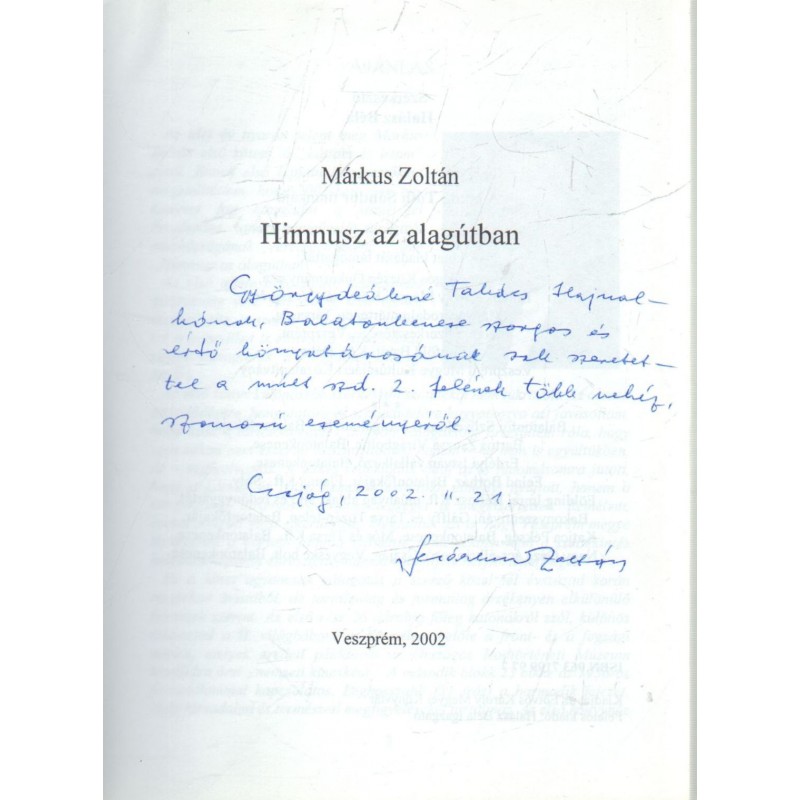 Márkus Zoltán
Himnusz az alagútban
Györgydeákné Takács Hajnal-
kának, Balatonkenese szorgos és
értő könyvtárosának sok szeretet-
tel a múlt szd. 2. felének több nehéz,
szomorú eseményéről.
Csajág, 2002. II. 21.
Zoltán
Veszprém, 2002